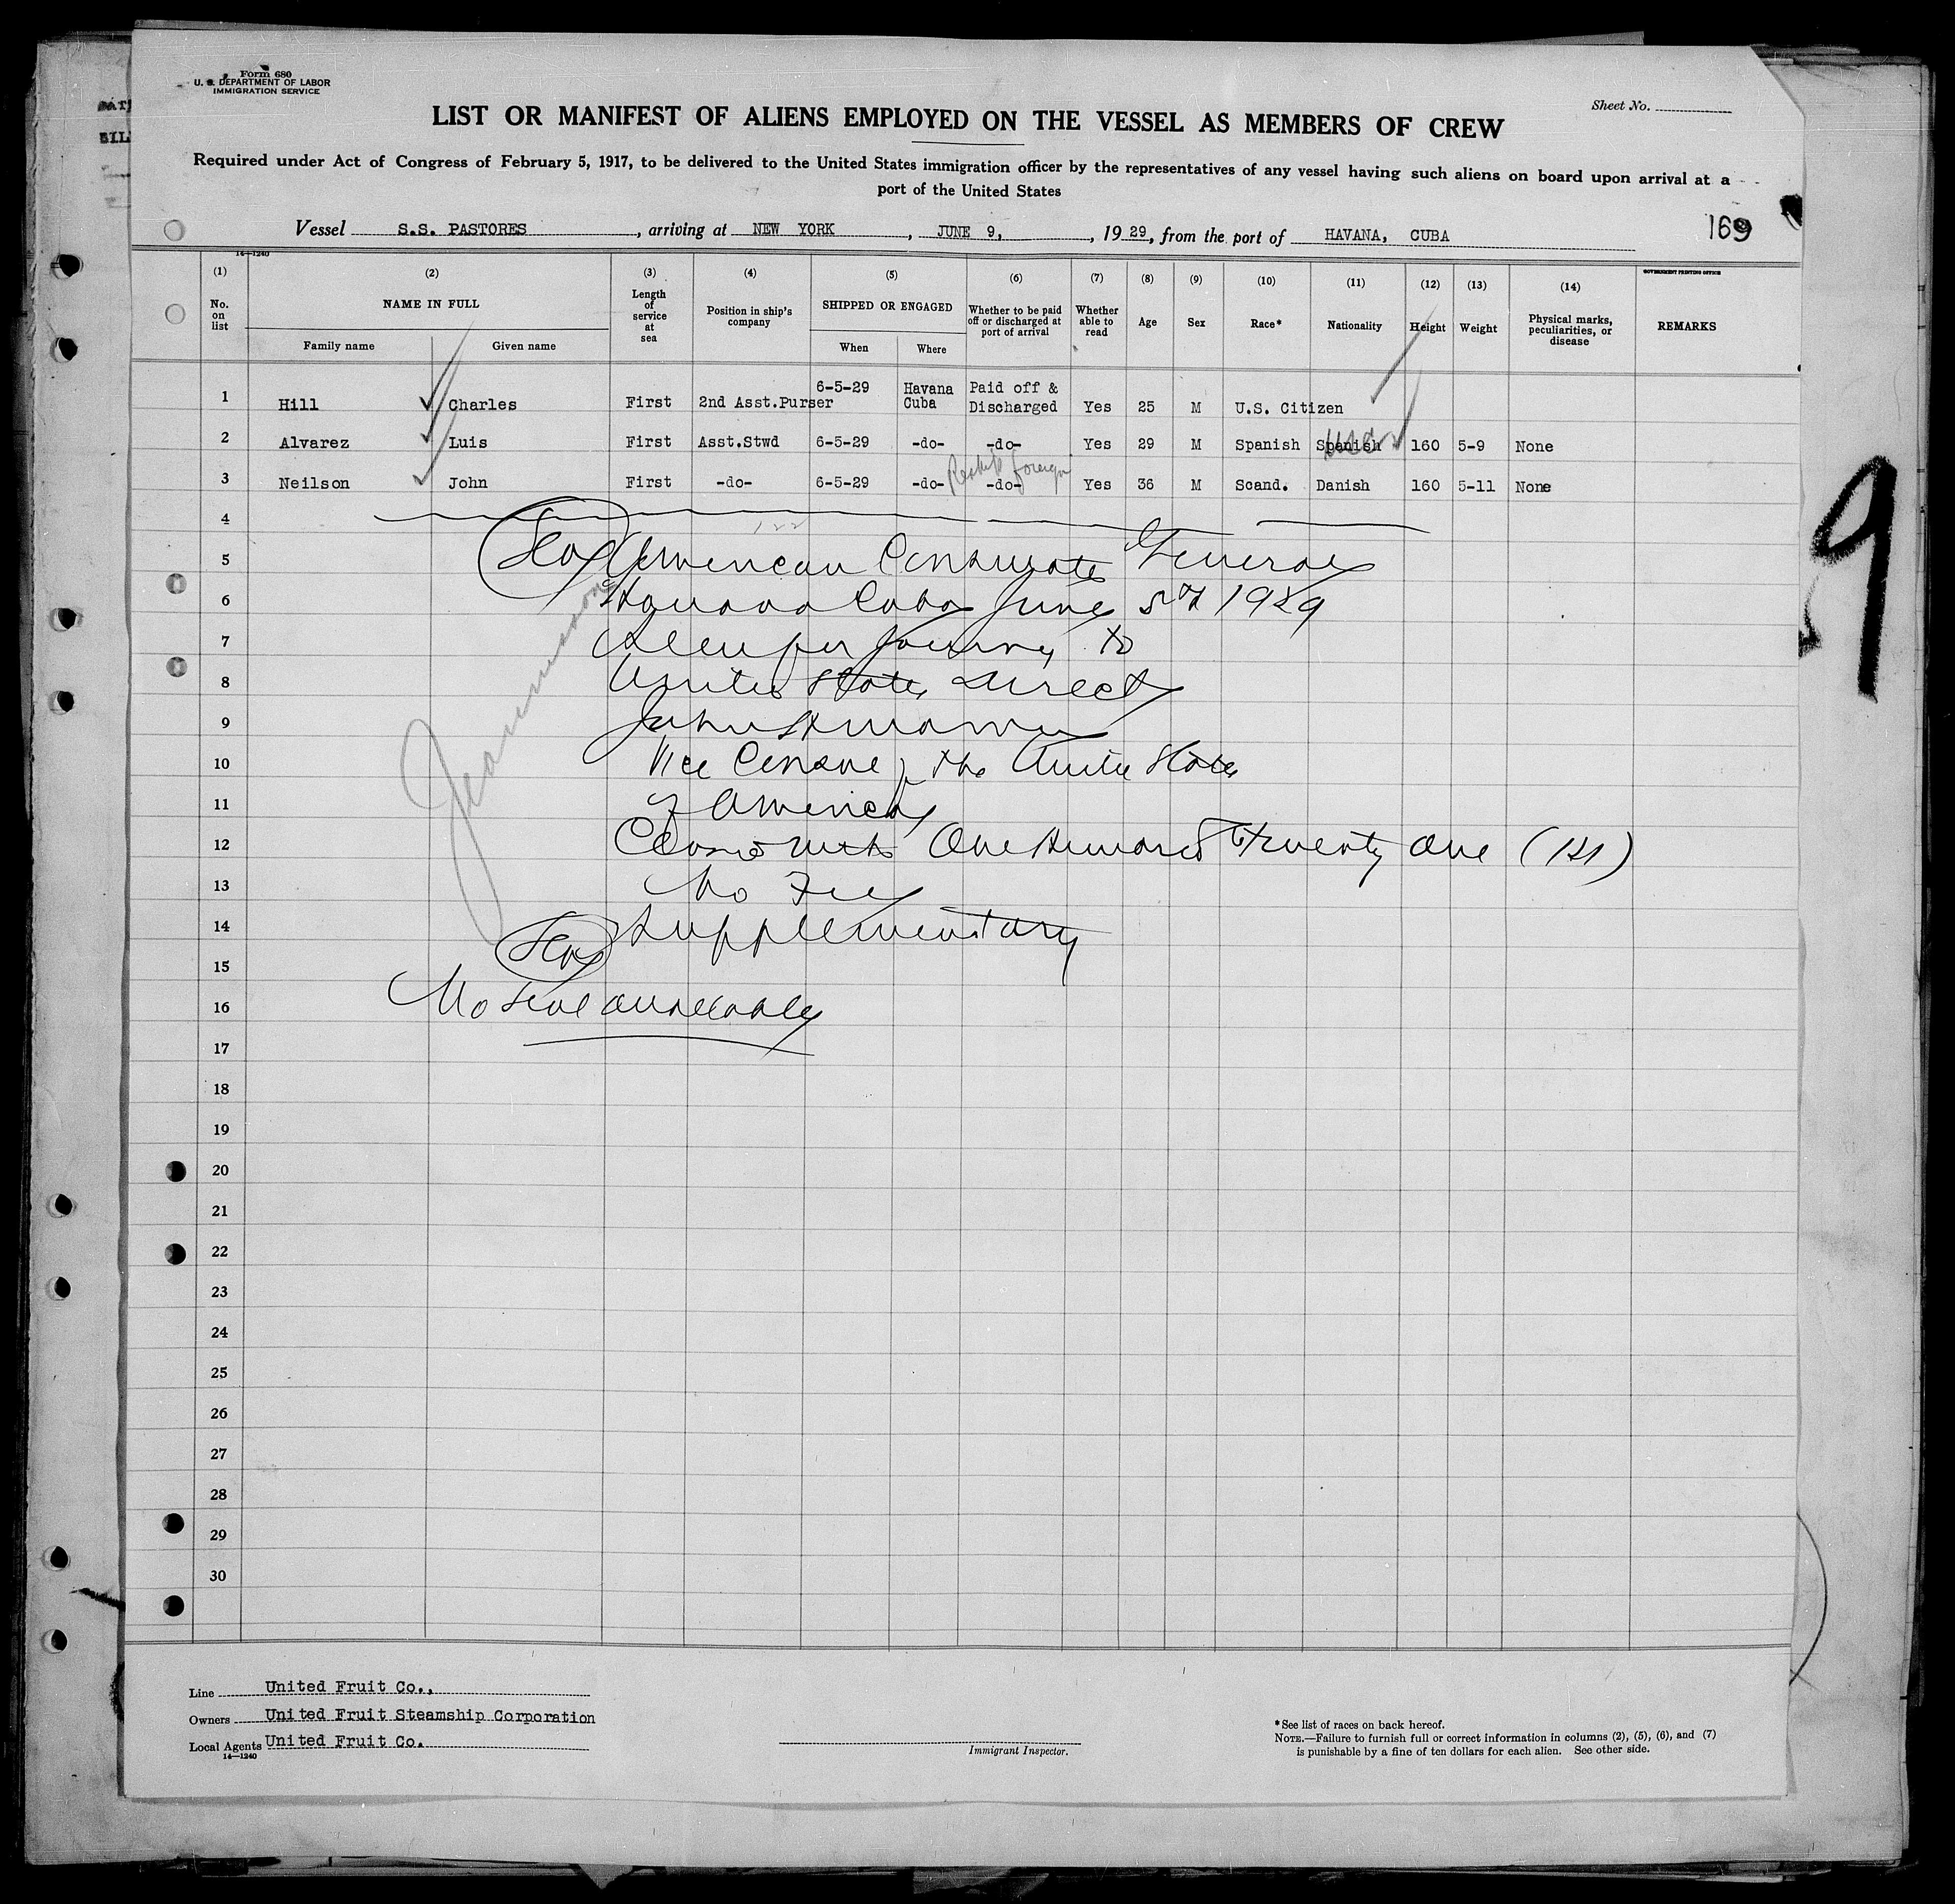 Form 680
U. S. DEPARTMENT OF LABOR
IMMIGRATION SERVICE
Sheet No.
LIST OR MANIFEST OF ALIENS EMPLOYED ON THE VESSEL AS MEMBERS OF CREW
Required under Act of Congress of February 5, 1917, to be delivered to the United States immigration officer by the representatives of any vessel having such aliens on board upon arrival at a
port of the United States
Vessel S.S. PASTORES, arriving at NEW YORK, JUNE 9, 1929, from the port of HAVANA, CUBA
169
14—1240
GOVERNMENT PRINTING OFFICE
(1) (2) (3) (4) (5) (6) (7) (8) (9) (10) (11) (12) (13) (14)
No. on list NAME IN FULL Length of service at sea Position in ship's company SHIPPED OR ENGAGED Whether to be paid off or discharged at port of arrival Whether able to read Age Sex Race* Nationality Height Weight Physical marks, peculiarities, or disease REMARKS
Family name Given name When Where
1 Hill Charles First 2nd Asst.Purser 6-5-29 Havana Cuba Paid off & Discharged Yes 25 M U.S. Citizen
2 Alvarez Luis First Asst.Stwd 6-5-29 -do- -do- Yes 29 M Spanish Spanish 160 5-9 None
foreign
3 Neilson John First -do- 6-5-29 -do- -do- Yes 36 M Scand. Danish 160 5-11 None
4
5 Seal American Consulate General
6 Havana Cuba June 5th 1929
7 Seen for journey to
8 United States direct
9 John
10 Vice Consul of the United States
11 of America
12 One Hundred Twenty One (121)
13 No Fee
14 Supplementary
Seal
15
16 No seal available
17
18
19
20
21
22
23
24
25
26
27
28
29
30
9
Line United Fruit Co.,
Owners United Fruit Steamship Corporation
Local Agents United Fruit Co.
14—1240
Immigrant Inspector.
*See list of races on back hereof.
NOTE.—Failure to furnish full or correct information in columns (2), (5), (6), and (7)
is punishable by a fine of ten dollars for each alien. See other side.